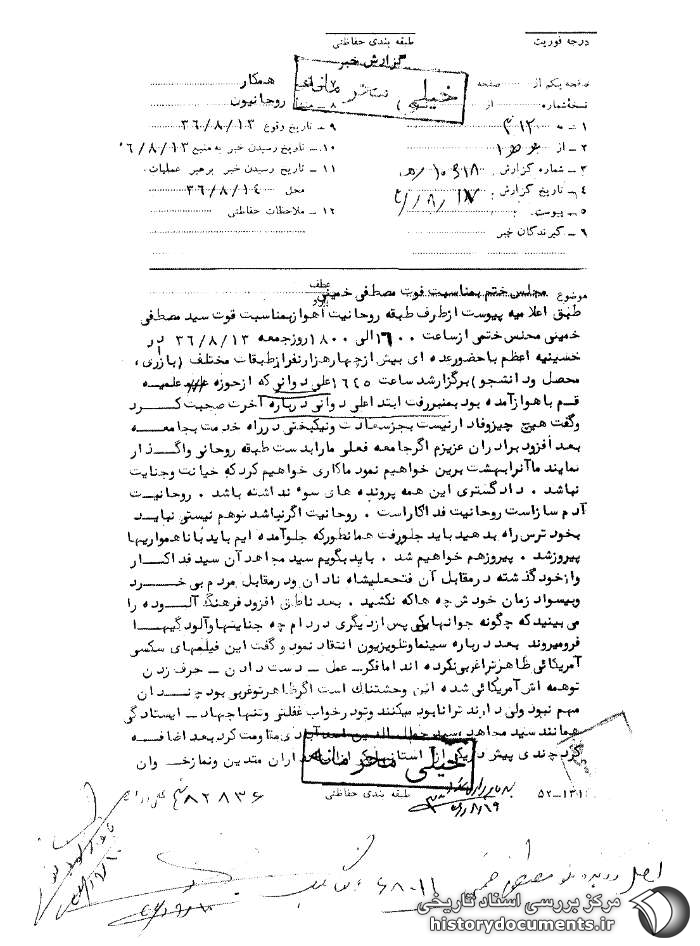 درجه فوریت
طبقه بندی حفاظتی
گزارش خبر
خیلی محرمانه
صفحه یکم از صفحه
نسخه شماره از
همکار
روحانیون
۱ ـ به ۳۱۲
۲ ـ از
۳ ـ شماره گزارش
۴ ـ تاریخ گزارش
۵ ـ پیوست :
۶ ـ گیرندگان خبر
۹ ـ تاریخ وقوع ۳۶/۸/۱۳
۱۰ ـ تاریخ رسیدن خبر به منبع ۳۶/۸/۱۳
۱۱ ـ تاریخ رسیدن خبر برهبر عملیات
محل ۳۶/۸/۱۴
۱۲ ـ ملاحظات حفاظتی
موضوع مجلس ختم بمناسبت فوت مصطفی خمینی
عطف
طبق اعلامیه پیوست ازطرف طبقه روحانیت اهوازبمناسبت فوت سید مصطفی
خمینی مجلس ختمی ازساعت ۱۶۰۰ الی ۱۸۰۰ روزجمعه ۳۶/۸/۱۳ در
حسینیه اعظم باحضورعده ای بیش ازچهارهزارنفرازطبقات مختلف (بازاری ،
محصل ودانشجو) برگزارشد ساعت ۱۶۴۵ علی دوانی که ازحوزه علمیه
قم باهوازآمده بود بمنبررفت ابتدا علی دوانی درباره آخرت صحبت کرد
وگفت هیچ چیزوفادارنیست بجزسعادت ونیکبختی درراه خدمت بجامعه
بعد افزود برادران عزیزم اگرجامعه فعلی مارابدست طبقه روحانی واگذار
نمایند ماآنرابهشت برین خواهیم نمود ماکاری خواهیم کرد که خیانت وجنایت
نباشد . دادگستری این همه پرونده های سوء نداشته باشد . روحانیت
آدم سازاست روحانیت فداکاراست . روحانیت اگرنباشد توهم نیستی نباید
بخود ترس راه بدهید باید جلورفت همانطورکه جلوآمده ایم باید باناهمواریها
پیروزشد . پیروزهم خواهیم شد . باید بگویم سید مجاهد آن سید فداکار
وازخود گذشته درمقابل آن فتحعلیشاه نادان ودرمقابل مردم بی خرد
وبیسواد زمان خودش چه هاکه نکشید . بعد ناطق افزود فرهنگ آلوده را
می بینید که چگونه جوانهایکی پس ازدیگری دردام چه جنایتهاوآلودگیها
فرومیروند بعد درباره سینماوتلویزیون انتقاد نمود وگفت این فیلمهای سکسی
آمریکائی ظاهرتراغربی نکرده اند امافکر ـ عمل ـ دست دادن ـ حرف زدن
توهمه اش آمریکائی شده این وحشتناک است اگرظاهرتوغربی بود چندان
مهم نبود ولی دارند ترانابود میکنند وتودرخواب غفلتی وتنهاجهاد ـ ایستادگی
همانند سید مجاهد سید جمال الدین اسد آبادی مقاومت کرد بعد اضافه
کرد چندی پیش دریکی از متدین ونمازخوان
خیلی محرمانه
طبقه بندی حفاظتی
۸۲۸۳۶
اصل در پرونده مصطفی خمینی
مرکز بررسی اسناد تاریخی
historydocuments.ir